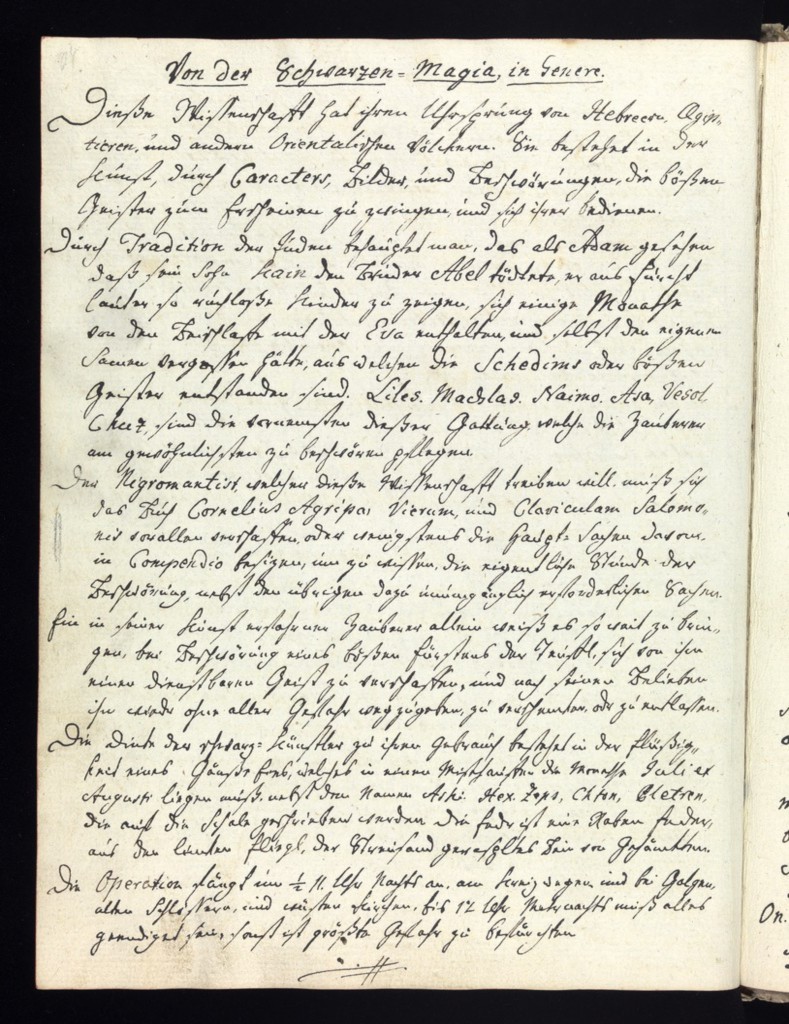 Von der Schwarzen-Magia, in Genere.
Dieße Wissenschafft hat ihren Uhrsprung von Hebreern, Egip-
tieren, und andern Orientalischen Völckern. Sie bestehet in der
Kunst, durch Caracters, Bilder, und Beschwörungen, die bößen
Geister zum Erscheinen zu zwingen, und sich ihrer bedienen.
Durch Tradition der Juden behauptet man, das als Adam gesehen
daß sein Sohn Kain den Bruder Abel tödtete, er aus Furcht
lauter so ruchloße Kinder zu zeigen, sich einige Monathe
von den Beischlafe mit der Eva enthalten, und selbst den eigenen
Samen vergossen hätte, aus welchen die Schedims oder bößen
Geister entstanden sind. Liles. Machlas. Naimo. Asa, Vesol,
Chuz, sind die vornemsten dießer Gattung, welche die Zauberer
am gewöhnlichsten zu beschwören pflegen.
Der Nigromantist, welcher dieße Wissenschafft treiben will, muß sich
das Buch Cornelius Agripa, Vierum, und Claviculam Salomo-
nis vorallen verschaffen, oder wenigstens die Haupt-Sachen davon
in Compendio besizen, um zu wissen, die eigentliche Stunde der
Beschwörung, nebst den übrigen dazu unumgänglich erforderlichen Sachen.
Ein in seiner Kunst erfahrner Zauberer allein weiß es so weit zu brin-
gen, bei Beschwörung eines bößen Fürstens der Teufel, sich von ihm
einen dienstbaren Geist zu verschaffen, und nach seinen Belieben
ihn wieder ohne aller Gefahr wegzugeben, zu verschenken, odr zu entlassen.
Die Dinte der schwarz-Künstler zu ihren Gebrauch bestehet in der Flüßig-
keit eines Gänße Eyes, welches in einen Misthaufen die Monathe Juli et
Augusti liegen muß, nebst den Namen
die auf die Schale geschrieben werden. Die Feder ist eine Raben Feder,
aus den linken Fliegl, der Streusand geraspltes Bein von Gehänkten.
Die Operation fängt um ½ 11. Uhr Nachts an, am Kreizwegen und bei Galgen,
alten Schlössern, und wüsten Kirchen, bis 12 Uhr Mitternachts muß alles
geendiget sein, sonst ist größte Gefahr zu befürchten